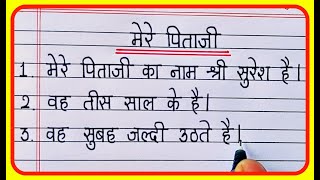 मेरे पिताजी
1. मेरे पिताजी का नाम श्री सुरेश है।
2. वह तीस साल के है।
3. वह सुबह जल्दी उठते है।